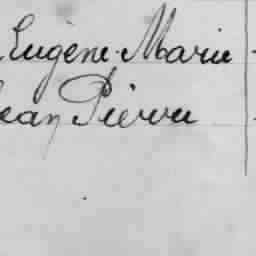 Eugène Marie
Jean Pierre